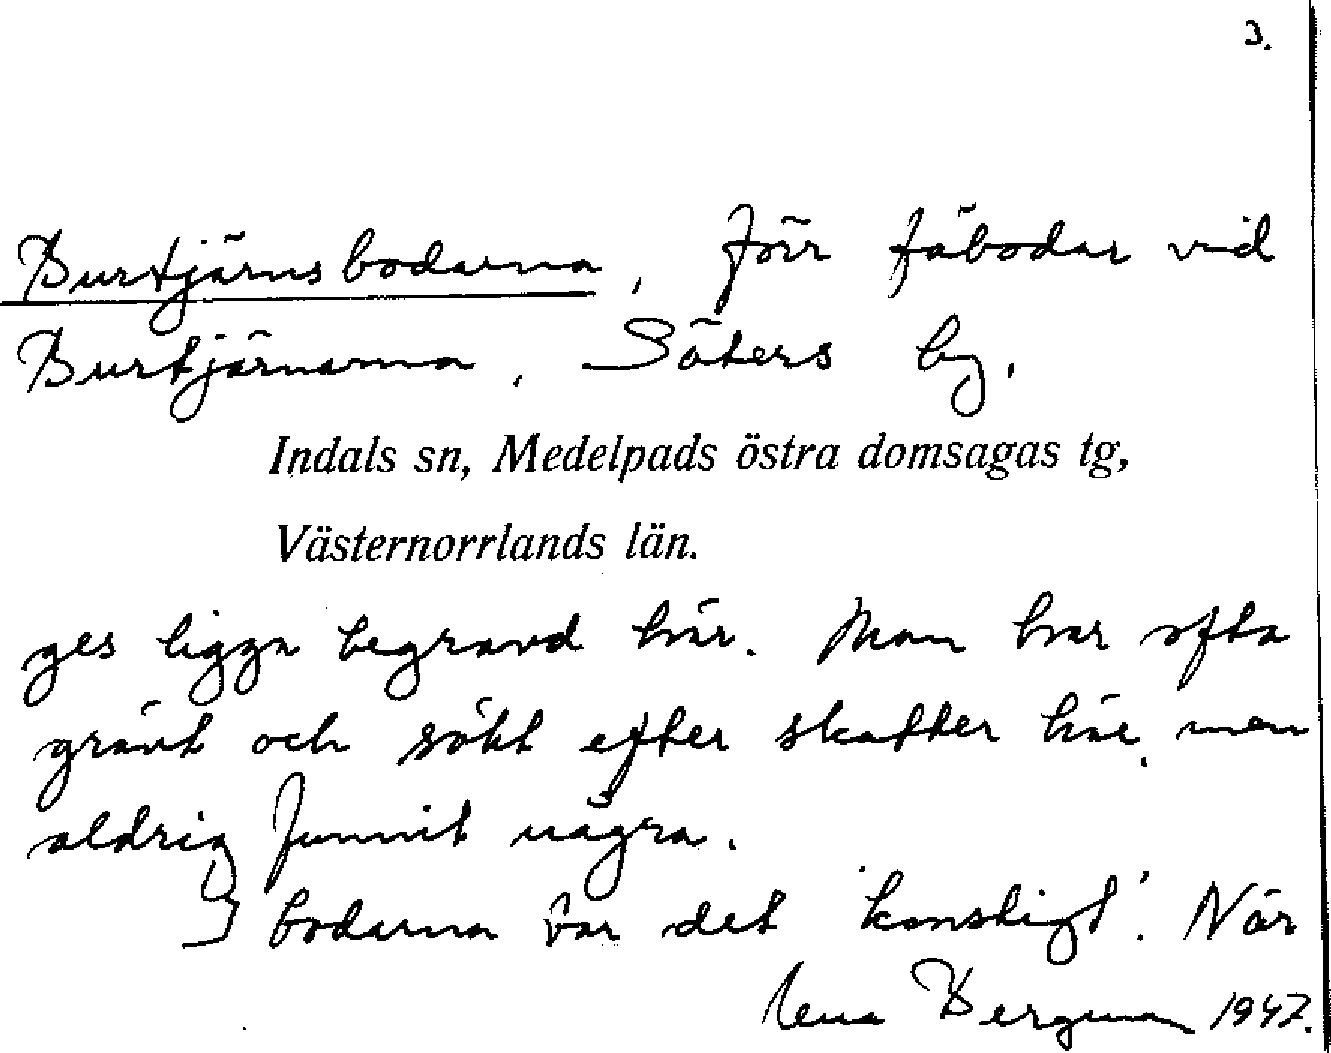 3.
Burtjärnsbodarna, förr fäbodar vid
Burtjärnarna, Säters by,
Indals sn, Medelpads östra domsagas tg,
Västernorrlands län.
ges ligga begravd här. Man har ofta
grävt och sökt efter skatter här, men
aldrig funnit några.
I bodarna var det 'konstigt'. När
Lena Bergman 1947.